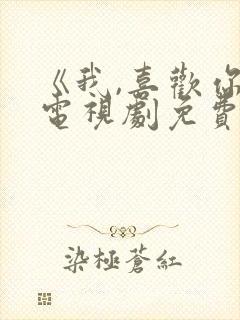 《我,喜歡你
電視劇免費
染極蒼紅